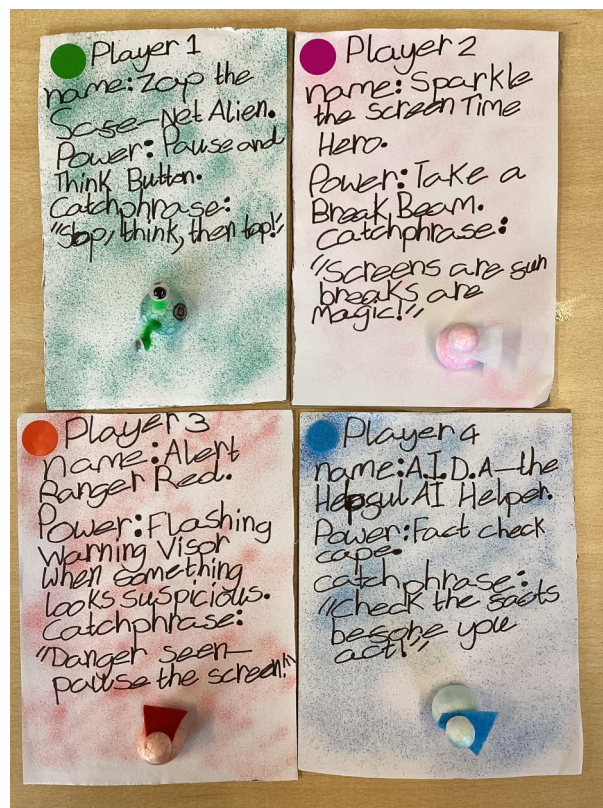 Player 1
name: Zap the
Sase-Net Alien.
Power: Pause and
Think Button.
Catchphrase:
"Stop, think, then tap!"
Player 2
name: Sparkle
the screen Time
Hero.
Power: Take a
Break Beam.
catchphrase:
"Screens are sun
breaks are
magic!"
Player 3
name: Alert
Ranger Red.
Power: Flashing
Warning Visor
when something
looks suspicious.
Catchphrase:
"Danger seen—
pause the screen!"
Player 4
name: A.I.D.A—the
Helpsul AI Helper.
Power: Fact check
cape.
catchphrase:
"check the sacts
besore you
act!"